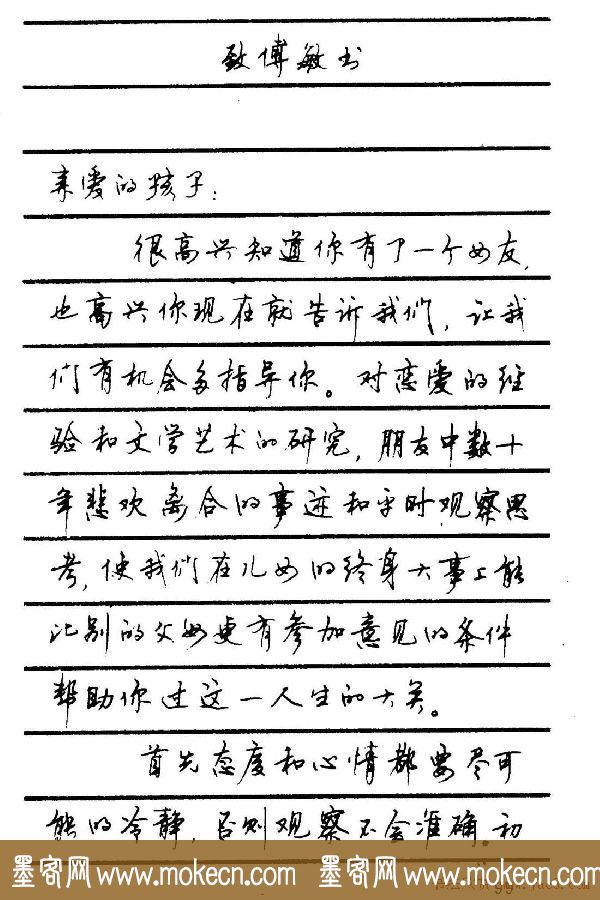 致傅敏书
亲爱的孩子:
很高兴知道你有了一个女友,
也高兴你现在就告诉我们,让我
们有机会多指导你。对恋爱的经
验和文学艺术的研究,朋友中数十
年悲欢离合的事迹和平时观察思
考,使我们在儿女的终身大事上能
比别的父母更有参加意见的条件
帮助你过这一人生的大关。
首先态度和心情都要尽可
能的冷静,否则观察不会准确.初
墨客网 www.mokecn.com 墨客网 www.mokecn.com